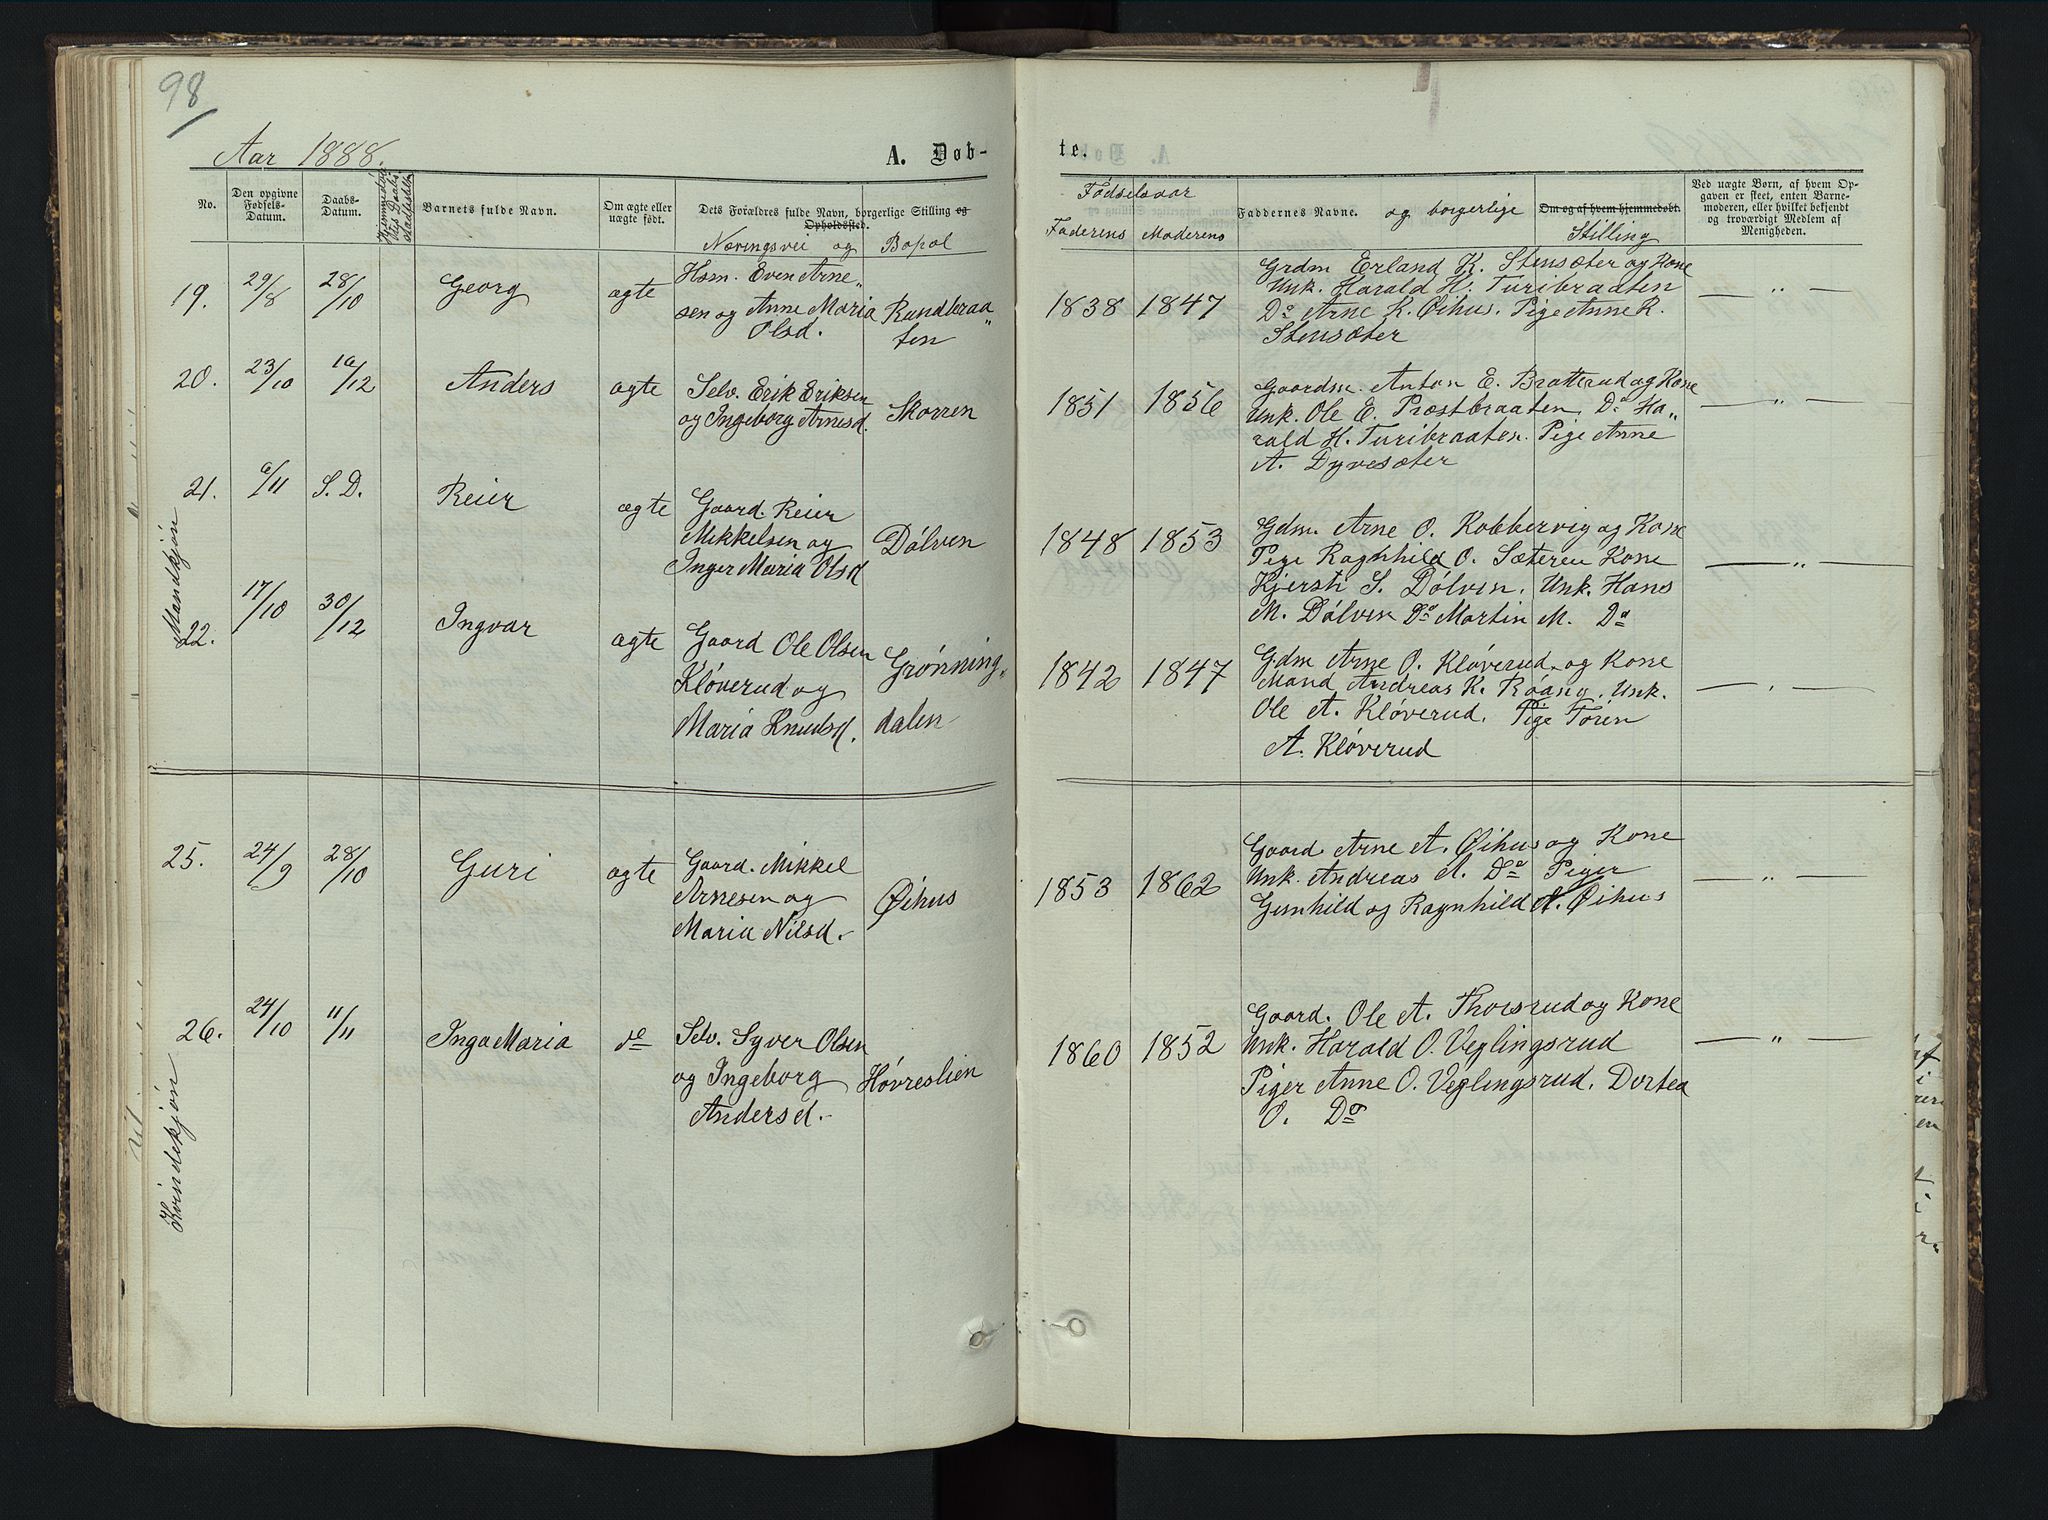 98
Aar 1888.
A. Døb-
te.
No.
Den opgivne Fødsels-Datum.
Daabs-Datum.
Barnets fulde Navn.
Om ægte eller uægte født.
Dets Forældres fulde Navn, borgerlige Stilling og Opholdssted.
Næringsvei og Bopæl
Fødselsaar
Faderens Moderens
Faddernes Navne. og borgerlige Stilling
Om og af hvem hjemmedøbt.
Ved uægte Børn, af hvem Op-
gaven er skeet, enten Barne-
moderen, eller hvilket bekjendt
og troværdigt Medlem af
Menigheden.
Mandkjøn
19. 29/8 28/10 Georg ægte
Hsm. Even Arne„
sen og Anne Maria
Olsd.
Rundbraa„
ten
1838 1847
Grdm Erland K. Stensæter og Kone
Unk. Harald H. Turibraaten
Do Arne K. Øihus. Pige Anne K.
Stensæter
— „ —
20. 23/10 16/12 Anders ægte
Selv. Erik Eriksen
og Ingeborg Arnesd.
Skorren
1851 1856
Gaardm. Anton E. Bratterud og Kone
Unk. Ole E. Præstbraaten. Do Ha„
rald H. Turibraaten. Pige Anne
A. Dyvesæter
— „ —
21. 6/11 S. D. Reier ægte
Gaard. Reier
Mikkelsen og
Inger Maria Olsd
Dölven
1848 1853
Gdm. Arne O. Kobbervig og Kone
Pige Ragnhild O. Sæteren Kone
Kjersti S. Dölven. Unk. Hans
M. Dölven Do Martin M. Do
— „ —
22. 17/10 30/12 Ingvar ægte
Gaard Ole Olsen
Klöverud og
Maria Knudsd.
Grønning„
dalen
1842 1847
Gdm Arne O. Klöverud og Kone
Mand Andreas K. Röang. Unk.
Ole A. Klöverud. Pige Tören
A. Klöverud
— . —
25. 24/9 28/10 Guri ægte
Gaard. Mikkel
Arnesen og
Maria Nilsd.
Øihus
1853 1862
Gaard. Arne A. Øihus og Kone
Unk. Andreas A. Do Piger
Gunhild og Ragnhild A. Øihus
— „ —
Kvindekjøn
26. 24/10 11/11 Inga Maria do
Selv. Syver Olsen
og Ingeborg
Andersd.
Hövreslien
1860 1852
Gaard. Ole A. Thorsrud og Kone
Unk. Harald O. Veglingsrud
Piger Anne O. Veglingsrud. Dortea
O. Do
— „ —